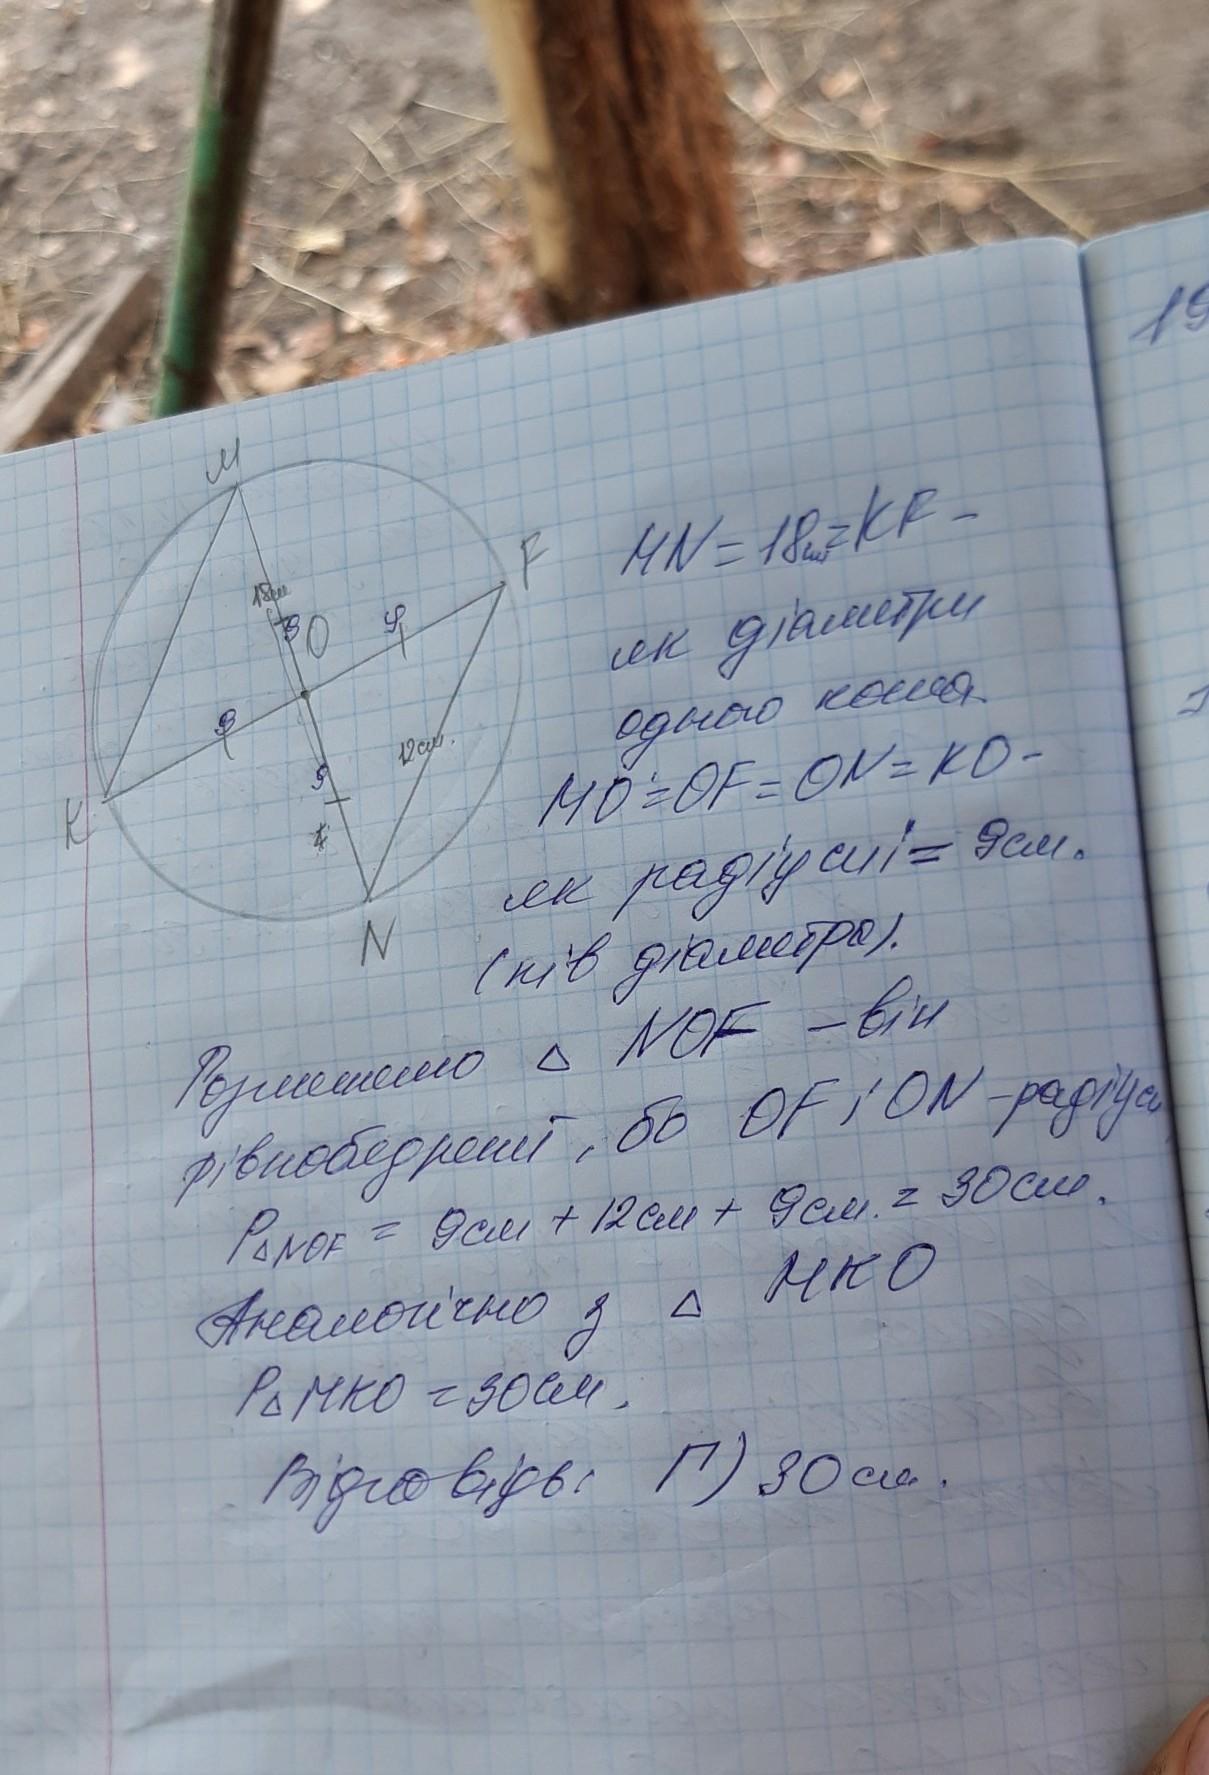 19
M
F
18см
9
O
9
9
12см.
9
K
N
MN = 18см = KF -
як діаметри
одного кола
MO = OF = ON = KO -
як радіуси = 9см.
(пів діаметра).
Розглянемо △ NOF - він
рівнобедрений, бо OF і ON - радіуси
P△NOF = 9см + 12см + 9см. = 30см.
Аналогічно з △ MKO
P△MKO = 30см.
Відповідь: Г) 30см.